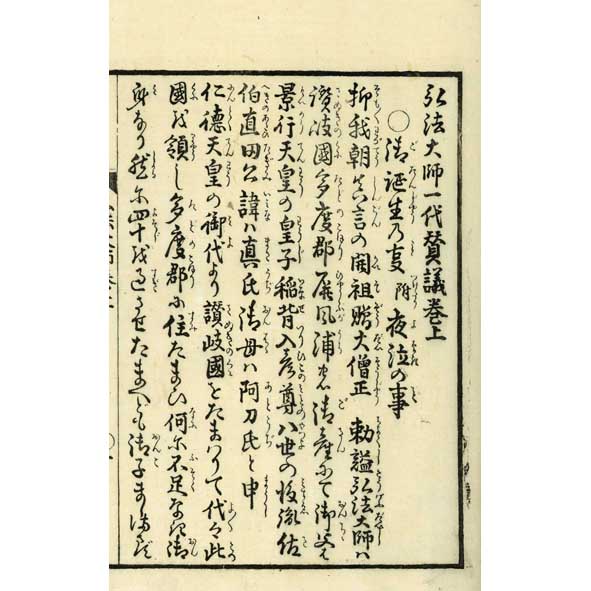 弘法大師一代賛議巻上
○御誕生乃事 附 夜泣の事
抑我朝真言の開祖贈大僧正 勅謚弘法大師ハ
讃岐國多度郡屏風浦也御産にて御父は
景行天皇の皇子稲背入彦尊八世の後胤佐
伯直田公諱ハ真氏御母ハ阿刀氏と申
仁徳天皇の御代より讃岐國をたまハりて代々此
國を領し多度郡に住たまひ何不足なき御
身なり然に四十を過させたまへども御子ましまさず